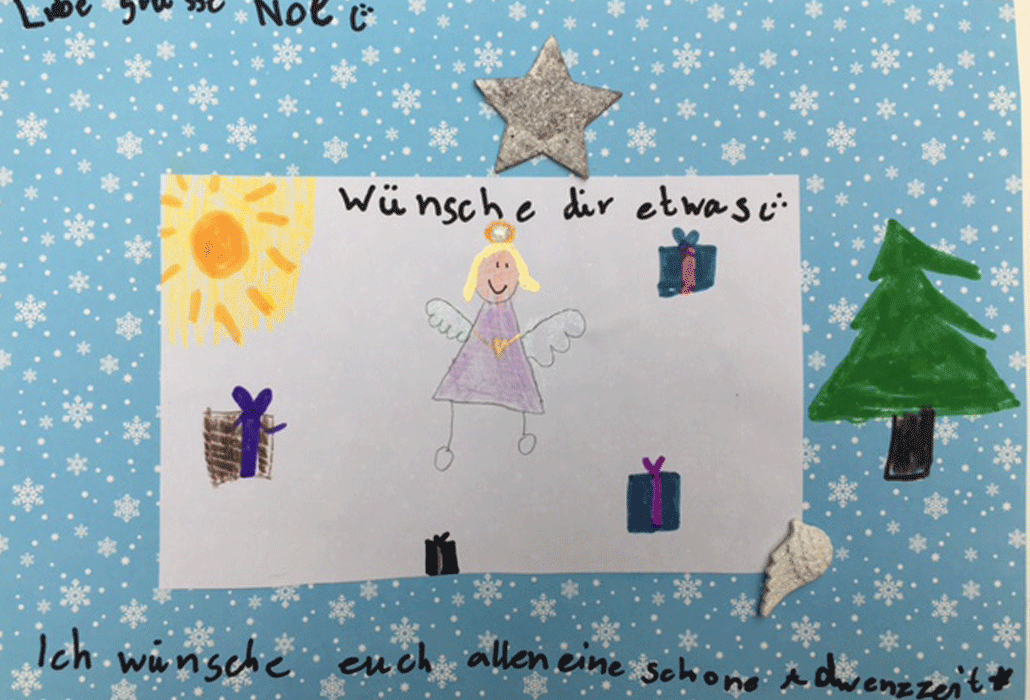 Liebe grüsse Noé
Wünsche dir etwas
Ich wünsche euch allen eine schöne Adwenzzeit*